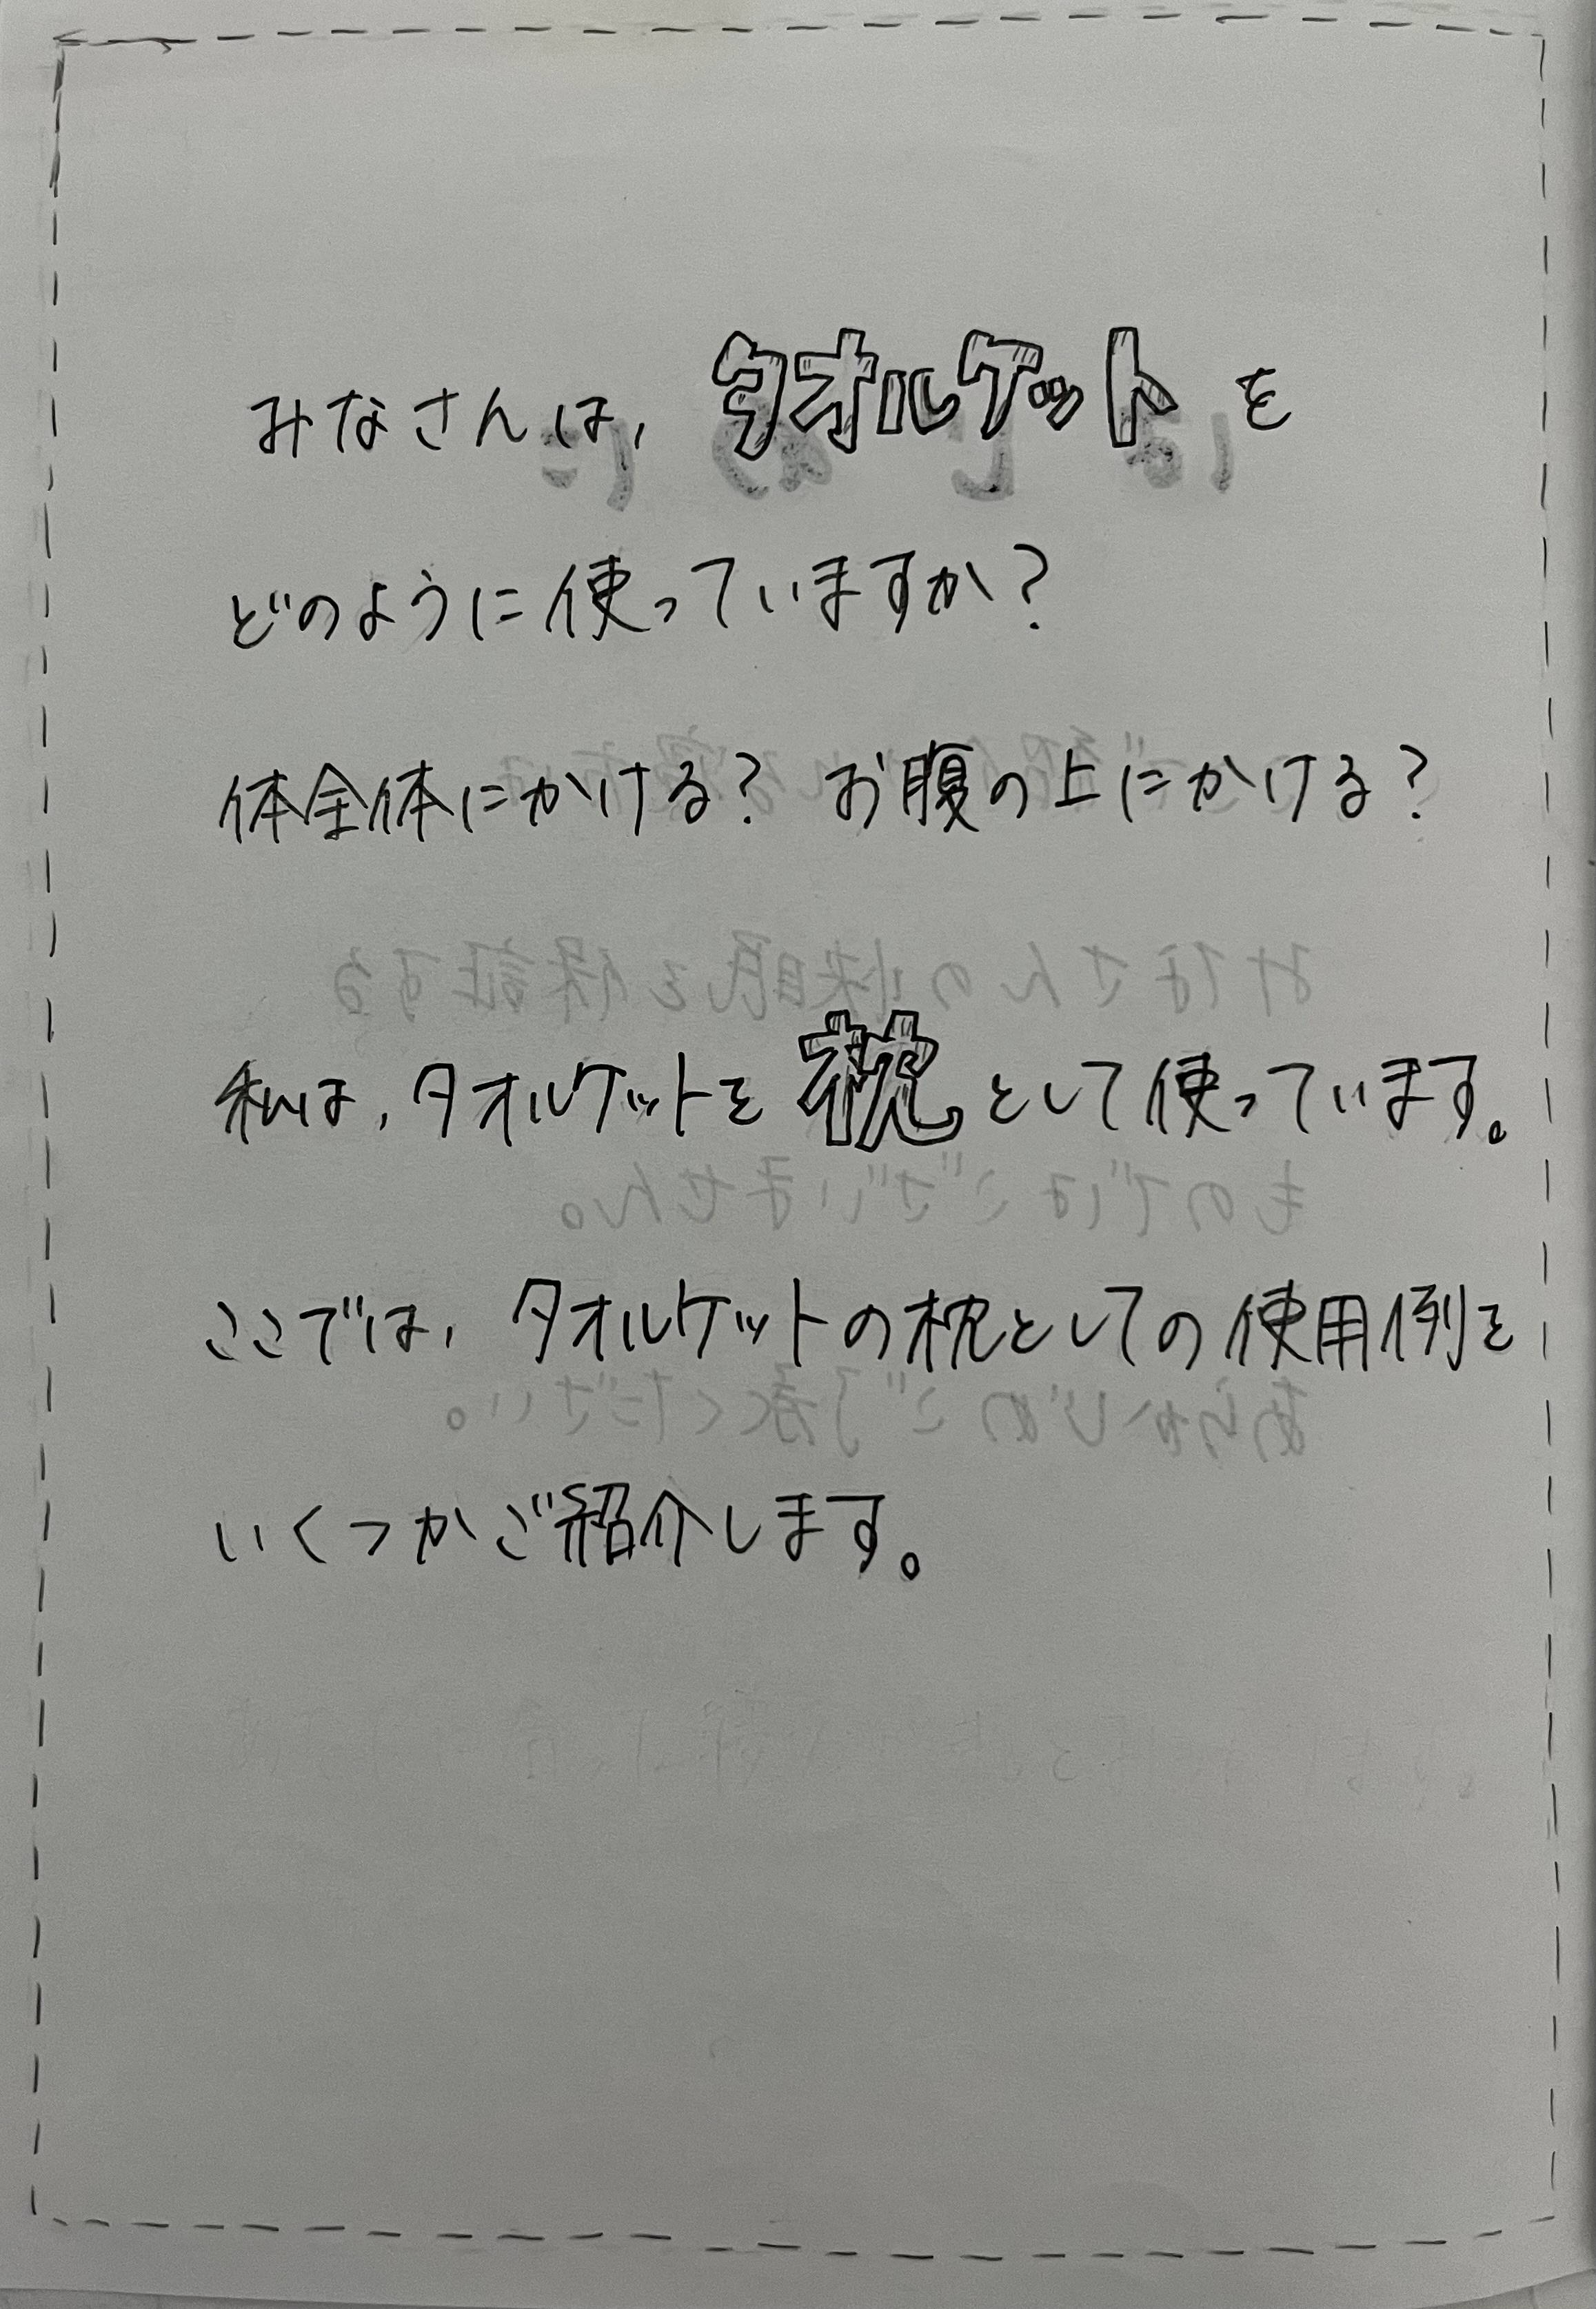 みなさんは, タオルケットを
どのように使っていますか?
体全体にかける? お腹の上にかける?
私は, タオルケットを枕として使っています。
ここでは, タオルケットの枕としての使用例を
いくつかご紹介します。